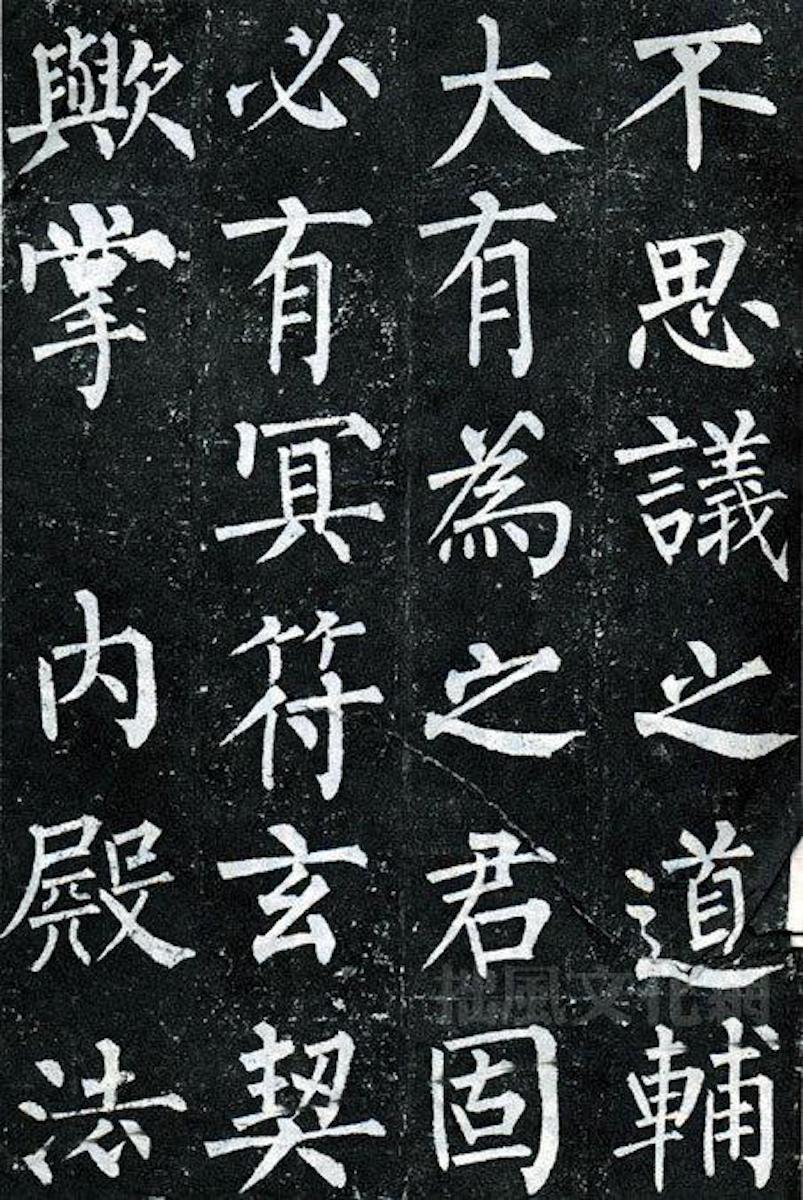 不思議之道輔
大有為之君固
必有冥符玄契
歟掌內殿法
拙風文化網